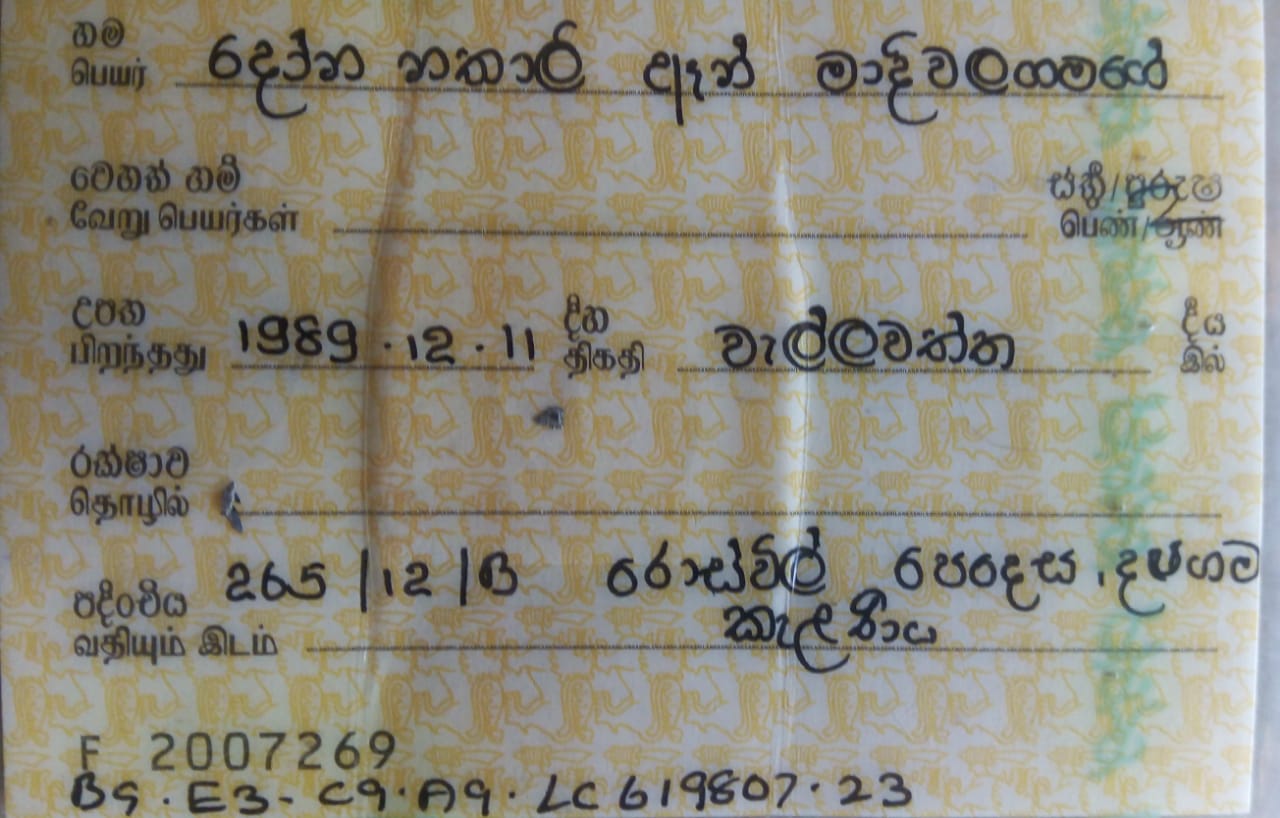 නම දෝන නතාලි ඈන් මාදිවලගමගේ
பெயர்
වෙනත් නම් ස්ත්‍රී/පුරුෂ
வேறு பெயர்கள் பெண்/ஆண்
උපන 1989.12.11 දින වැල්ලවත්ත දීය
பிறந்தது திகதி இல்
රක්ෂාව
தொழில்
265/12/B රොස්විල් පෙදෙස, දළුගම
පදිංචිය කැලණිය
வதியும் இடம்
F 2007269
B9.E3-C9.A9.LC619807.23